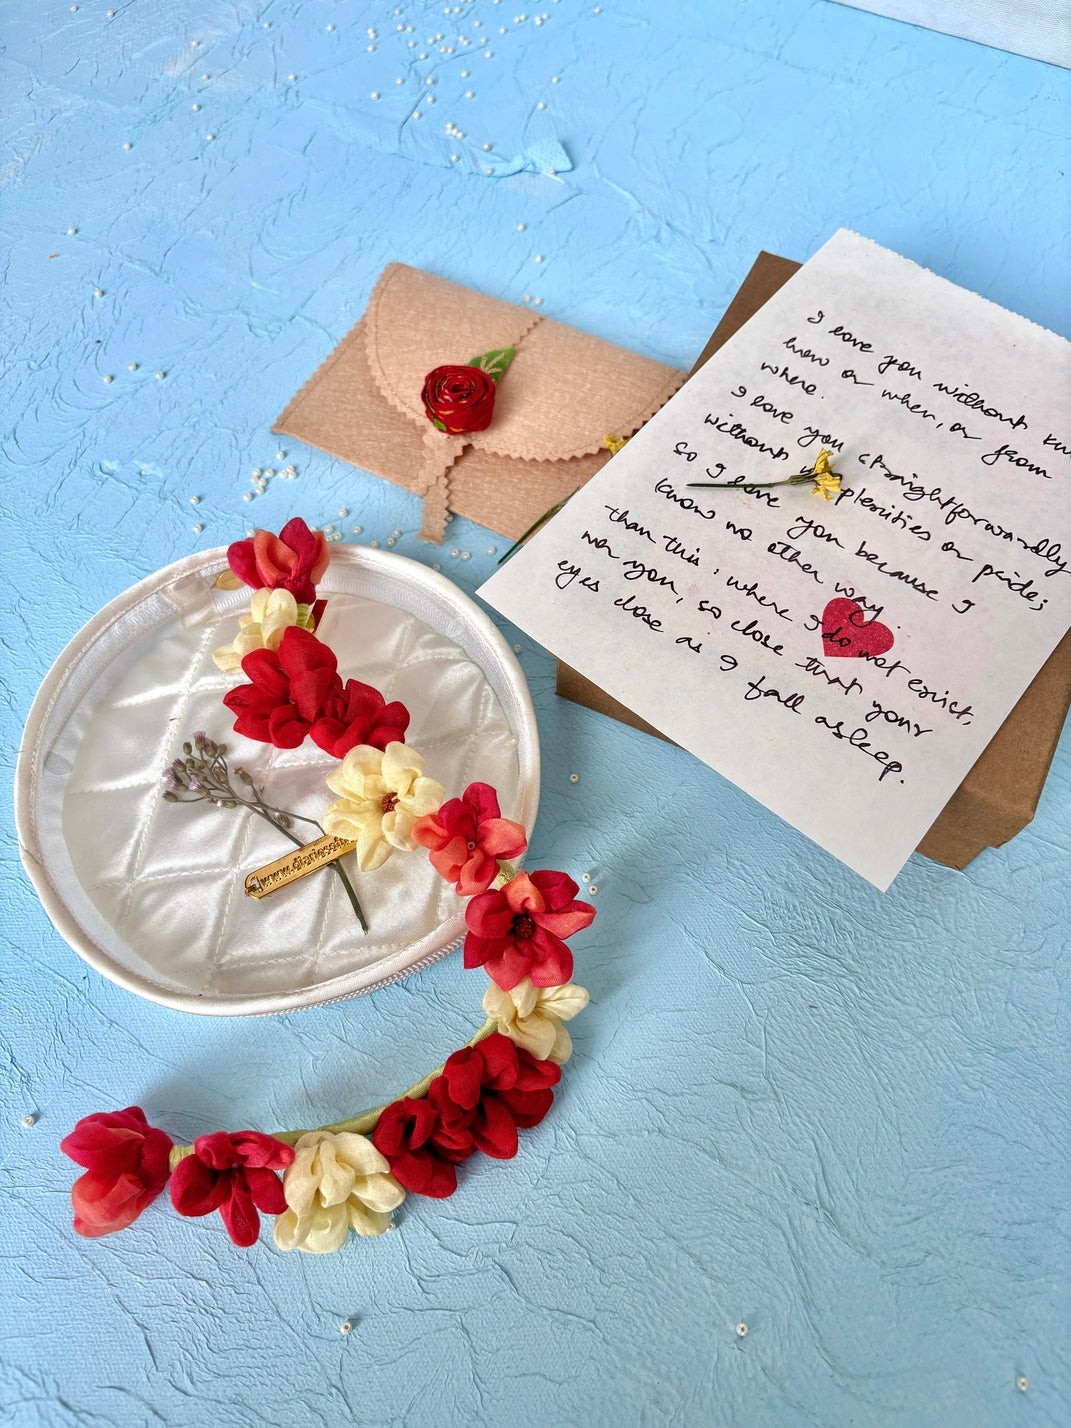 I love you without
how or when, or from
where.
I love you straightforwardly
without plexities or pride;
So I love you because I
know no other way.
than this: where I do not exist,
nor you, so close that your
eyes close as I fall asleep.